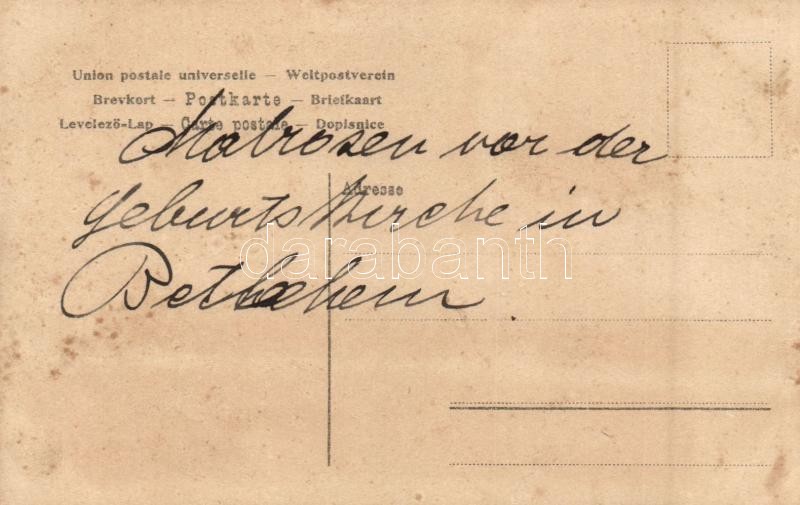 Union postale universelle — Weltpostverein
Brevkort — Postkarte — Briefkaart
Levelező-Lap — Carte postale — Dopisnice
Matrosen vor der
Adresse
Geburtskirche in
Bethlehem.
darabanth